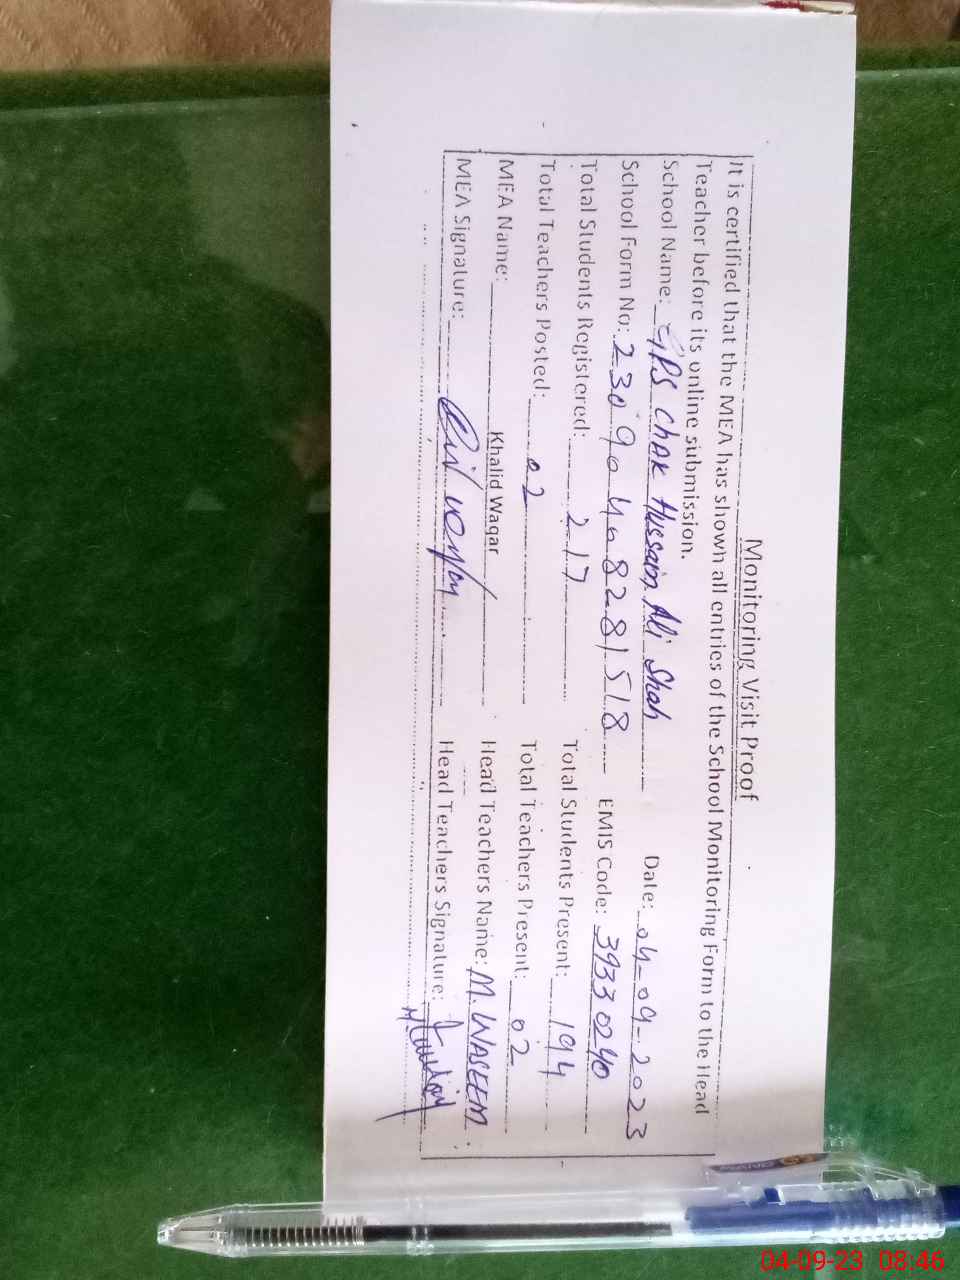 Monitoring Visit Proof
It is certified that the MEA has shown all entries of the School Monitoring Form to the Head
Teacher before its online submission.
School Name: GPS Chak Hussain Ali Shah Date: 04-09-2023
School Form No: 23090408281518 EMIS Code: 39330240
Total Students Registered: 217 Total Students Present: 194
Total Teachers Posted: 02 Total Teachers Present: 02
MEA Name: Khalid Waqar Head Teachers Name: M. WASEEM
MEA Signature: Head Teachers Signature:
04-09-23 08:46